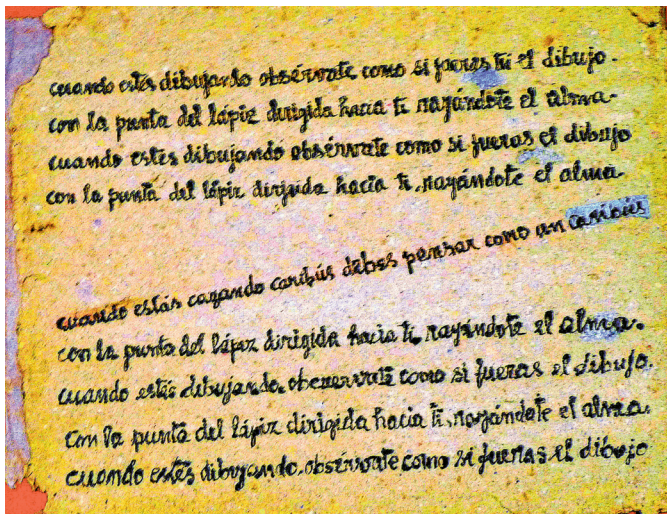 cuando estés dibujando obsérvate como si fueras tú el dibujo.
con la punta del lápiz dirigida hacia ti rayándote el alma-
cuando estés dibujando obsérvate como si fueras el dibujo
con la punta del lápiz dirigida hacia ti, rayándote el alma-
cuando estás cazando caribús debes pensar como un caribús
con la punta del lápiz dirigida hacia ti, rayándote el alma.
cuando estés dibujando, obserervate como si fueras el dibujo.
con la punta del lápiz dirigida hacia ti, rayándote el alma.
cuando estés dibujando, obsérvate como si fueras el dibujo